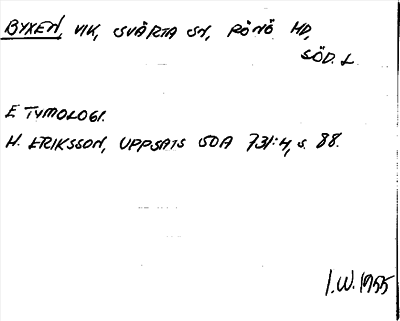 BYXEN, VIK, SVÄRTA SN, RÖNÖ HD,
SÖD. L.
ETYMOLOGI.
H. ERIKSSON, UPPSATS SOA 731:4, S. 88.
I.W. 1955